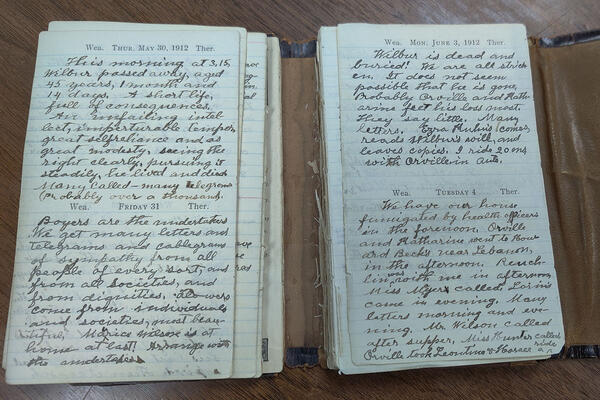 Wea. THUR. MAY 30, 1912 Ther.
This morning at 3.15,
Wilbur passed away, aged
45 years, 1 month and
14 days. A short life,
full of consequences.
An unfailing intel
lect, imperturable temper,
great selfreliance and as
great modesty, seeing the
right clearly, pursuing it
steadily, he lived and died
Many called - many telegrams
(Probably over a thousand.
Wea. FRIDAY 31 Ther.
Boyers are the undertakers
We get many letters and
telegrams and cablegrams
of sympathy from all
people of every sort, and
from all societies, and
from dignities. Flowers
come from individuals
and societies, most beau-
tiful,
home at last. Arrange with
the undertakers
Wea. MON. JUNE 3, 1912 Ther.
Wilbur is dead and
buried! We are all strick
en. It does not seem
possible that he is gone.
Probably Orville and Kath
arine feel his loss most.
They say little. Many
letters. Ezra Kuhns comes,
reads Wilbur's will, and
leaves copies. I ride 20 ms
with Orville in auto.
Wea. TUESDAY 4 Ther.
We have our house
fumigated by health officers
in the forenoon. Orville
and Katharine went to Bow
ard Becks near Lebanon,
in the afternoon. Reuch-
lin was with me in afternoon
Miss Myers called. Lorin
came in evening. Many
letters morning and eve-
ning. Mr. Wilson called
after supper, Miss Hunter called
Orville took Leontine & Horace a
ride